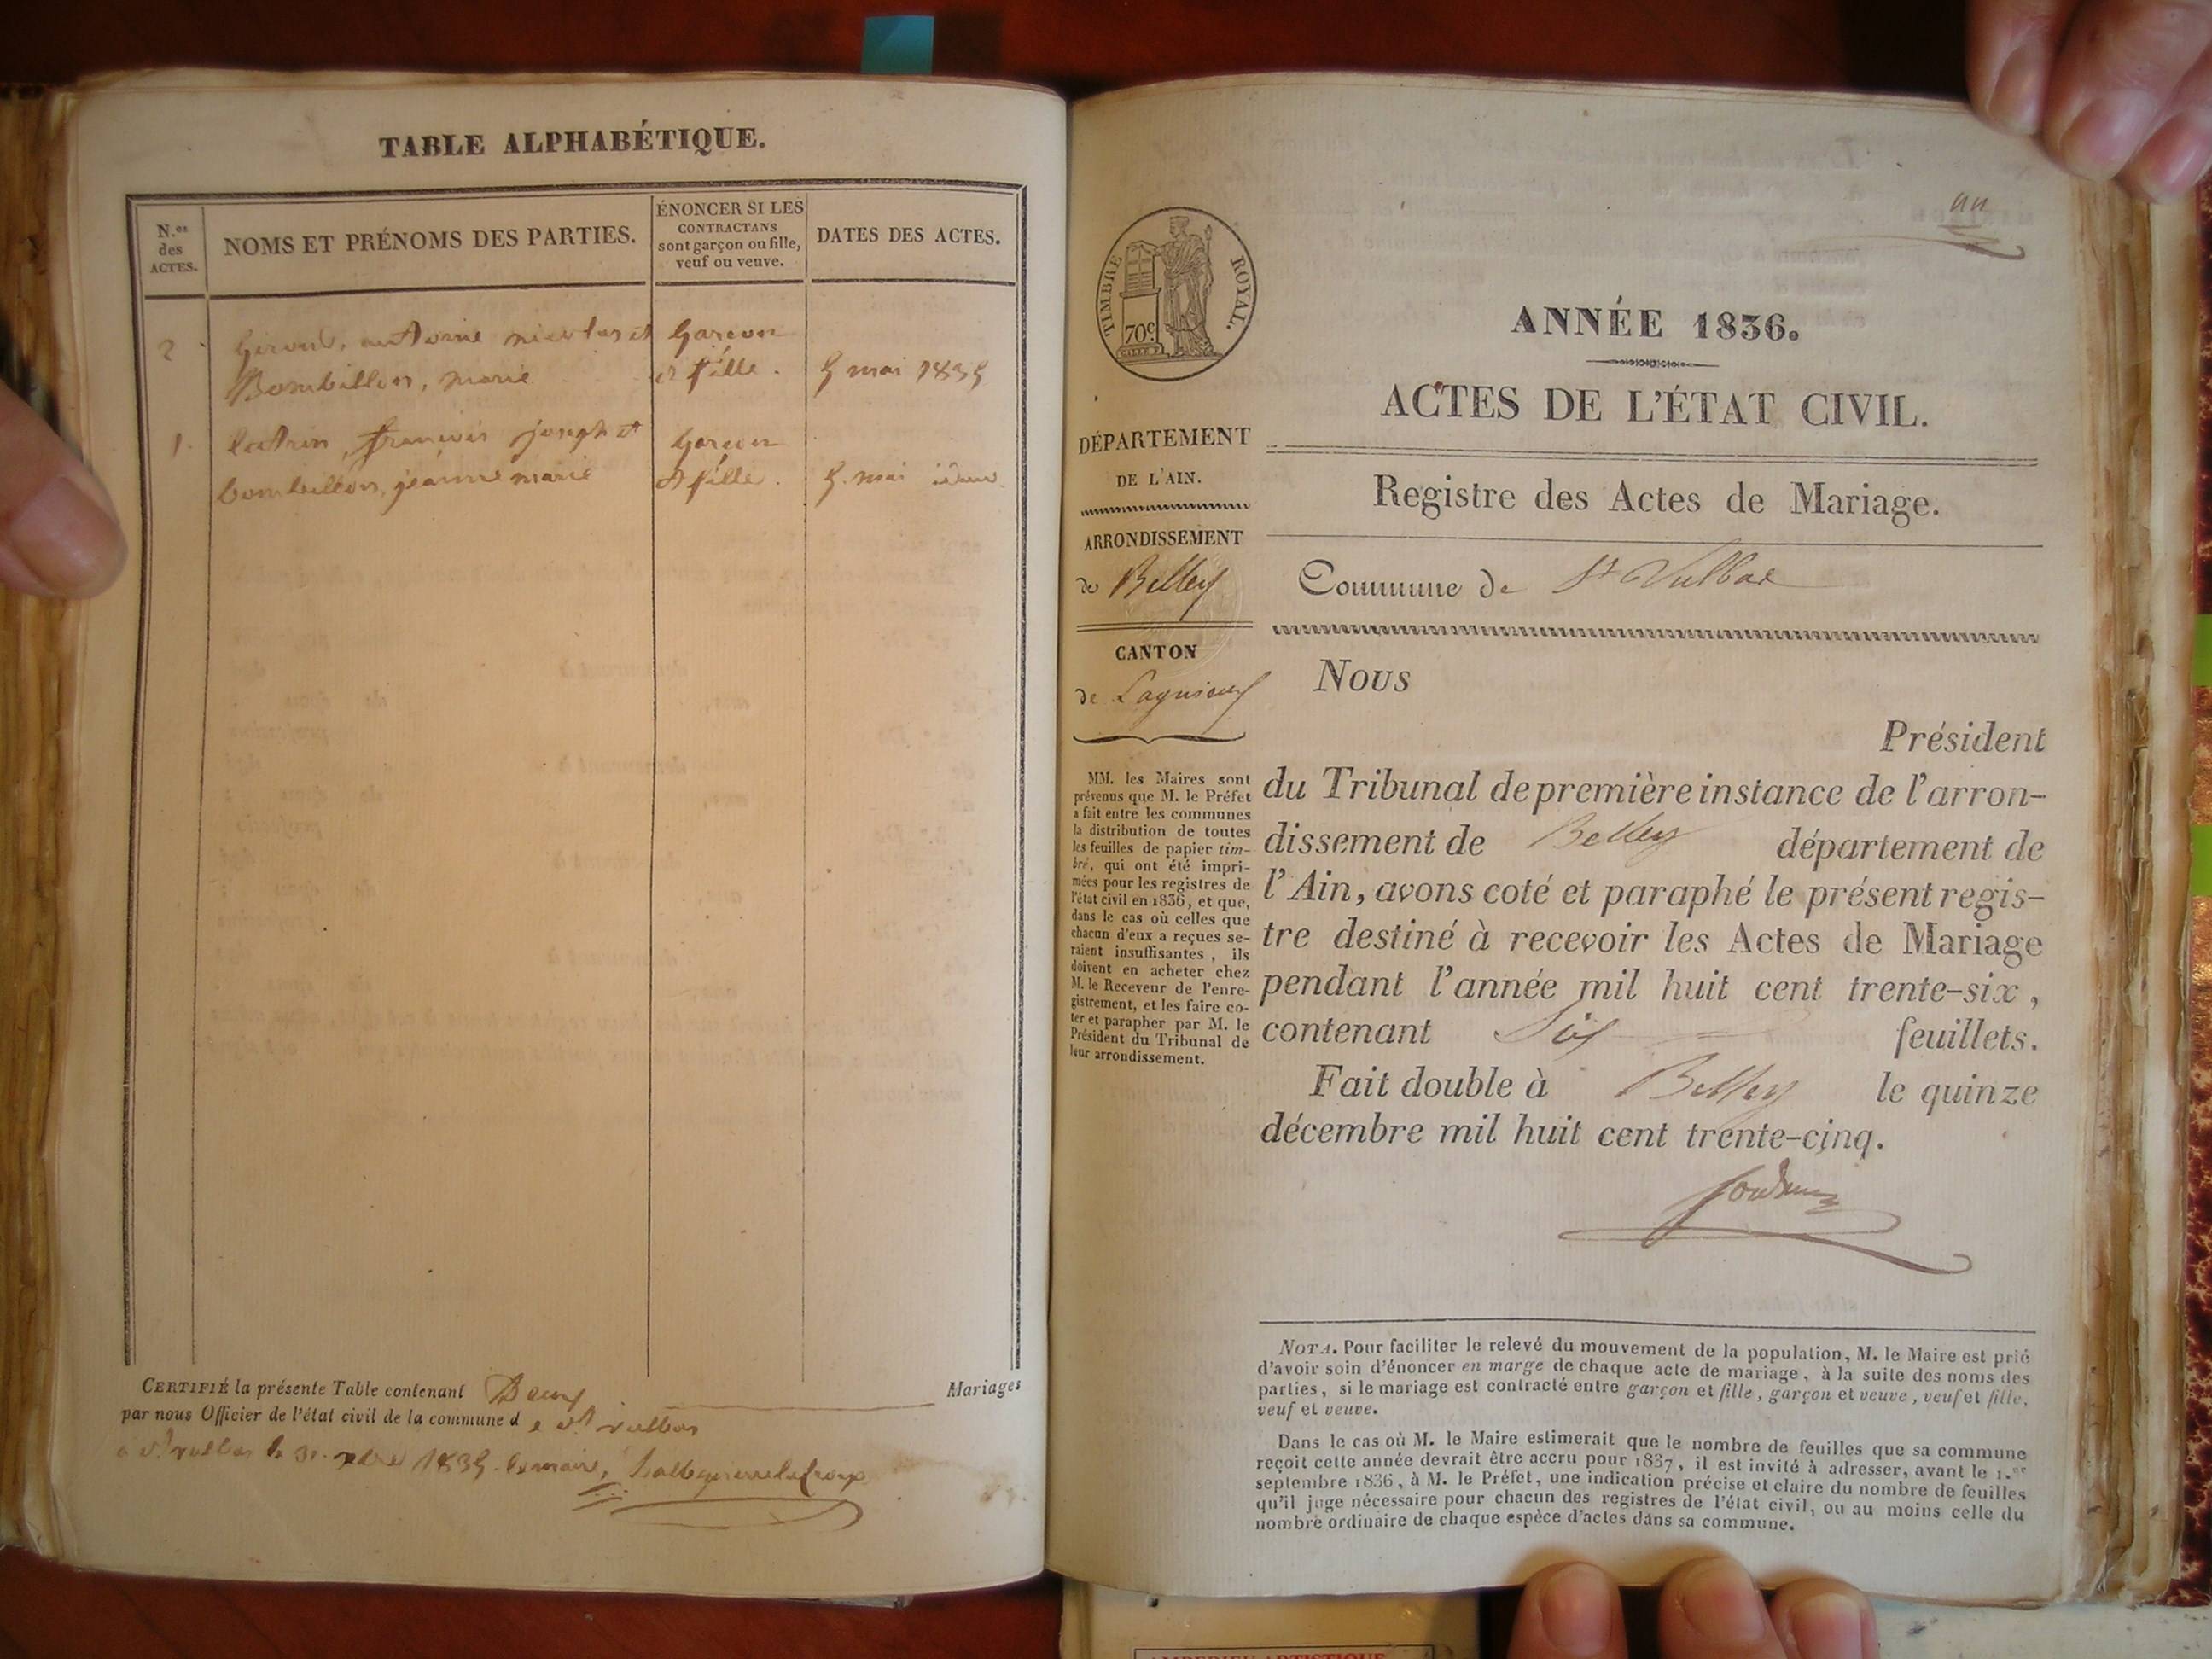 TABLE ALPHABÉTIQUE.
N.os
des
ACTES.
NOMS ET PRÉNOMS DES PARTIES.
ÉNONCER SI LES
CONTRACTANS
sont garçon ou fille,
veuf ou veuve.
DATES DES ACTES.
2 antoine nicolas et Garcon
Bombillon, marie et fille. 5 mai 1835
1. françois joseph et Garcon
bombillon, jeanne marie et fille. 5. mai idem
CERTIFIÉ la présente Table contenant Deux Mariages
par nous Officier de l'état civil de la commune d e St vulbas
a St vulbas le 31. xbre 1835. le maire,
un
TIMBRE ROYAL.
70c.
ANNÉE 1836.
ACTES DE L'ÉTAT CIVIL.
Registre des Actes de Mariage.
Commune de St Vulbas
DÉPARTEMENT
DE L'AIN.
ARRONDISSEMENT
de Belley
CANTON
de Lagnieu
MM. les Maires sont
prévenus que M. le Préfet
a fait entre les communes
la distribution de toutes
les feuilles de papier tim-
bré, qui ont été impri-
mées pour les registres de
l'état civil en 1836, et que,
dans le cas où celles que
chacun d'eux a reçues se-
raient insuffisantes, ils
doivent en acheter chez
M. le Receveur de l'enre-
gistrement, et les faire co-
ter et parapher par M. le
Président du Tribunal de
leur arrondissement.
Nous
Président
du Tribunal de première instance de l'arron-
dissement de Belley département de
l'Ain, avons coté et paraphé le présent regis-
tre destiné à recevoir les Actes de Mariage
pendant l'année mil huit cent trente-six,
contenant Six feuillets.
Fait double à Belley le quinze
décembre mil huit cent trente-cinq.
NOTA. Pour faciliter le relevé du mouvement de la population, M. le Maire est prié
d'avoir soin d'énoncer en marge de chaque acte de mariage, à la suite des noms des
parties, si le mariage est contracté entre garçon et fille, garçon et veuve, veuf et fille,
veuf et veuve.
Dans le cas où M. le Maire estimerait que le nombre de feuilles que sa commune
reçoit cette année devrait être accru pour 1837, il est invité à adresser, avant le 1.er
septembre 1836, à M. le Préfet, une indication précise et claire du nombre de feuilles
qu'il juge nécessaire pour chacun des registres de l'état civil, ou au moins celle du
nombre ordinaire de chaque espèce d'actes dans sa commune.